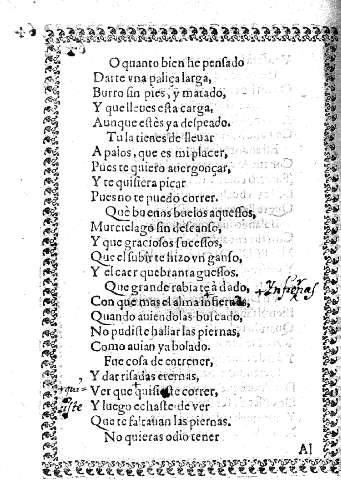 O quanto bien he pensado
Darte vna paliça larga,
Burro sin pies, y matado,
Y que lleues esta carga,
Aunque estès ya despeado.
Tu la tienes de lleuar
A palos, que es mi placer,
Pues te quiero auergonçar,
Y te quisiera picar
Pues no te puedo correr.
Què buenos buelos aquessos,
Murcielago sin descanso,
Y que graciosos sucessos,
Que el subir te hizo vn ganso,
Y el caer quebranta guessos.
Que grande rabia te à dado,
Con que mas el alma infiernas,
Quando auiendolas buscado,
No pudiste hallar las piernas,
Como auian ya bolado.
Fue cosa de entrener,
Y dar risadas eternas,
Ver que quisiste correr,
Y luego echaste de ver
Que te faltauan las piernas.
No quieras odio tener
Al